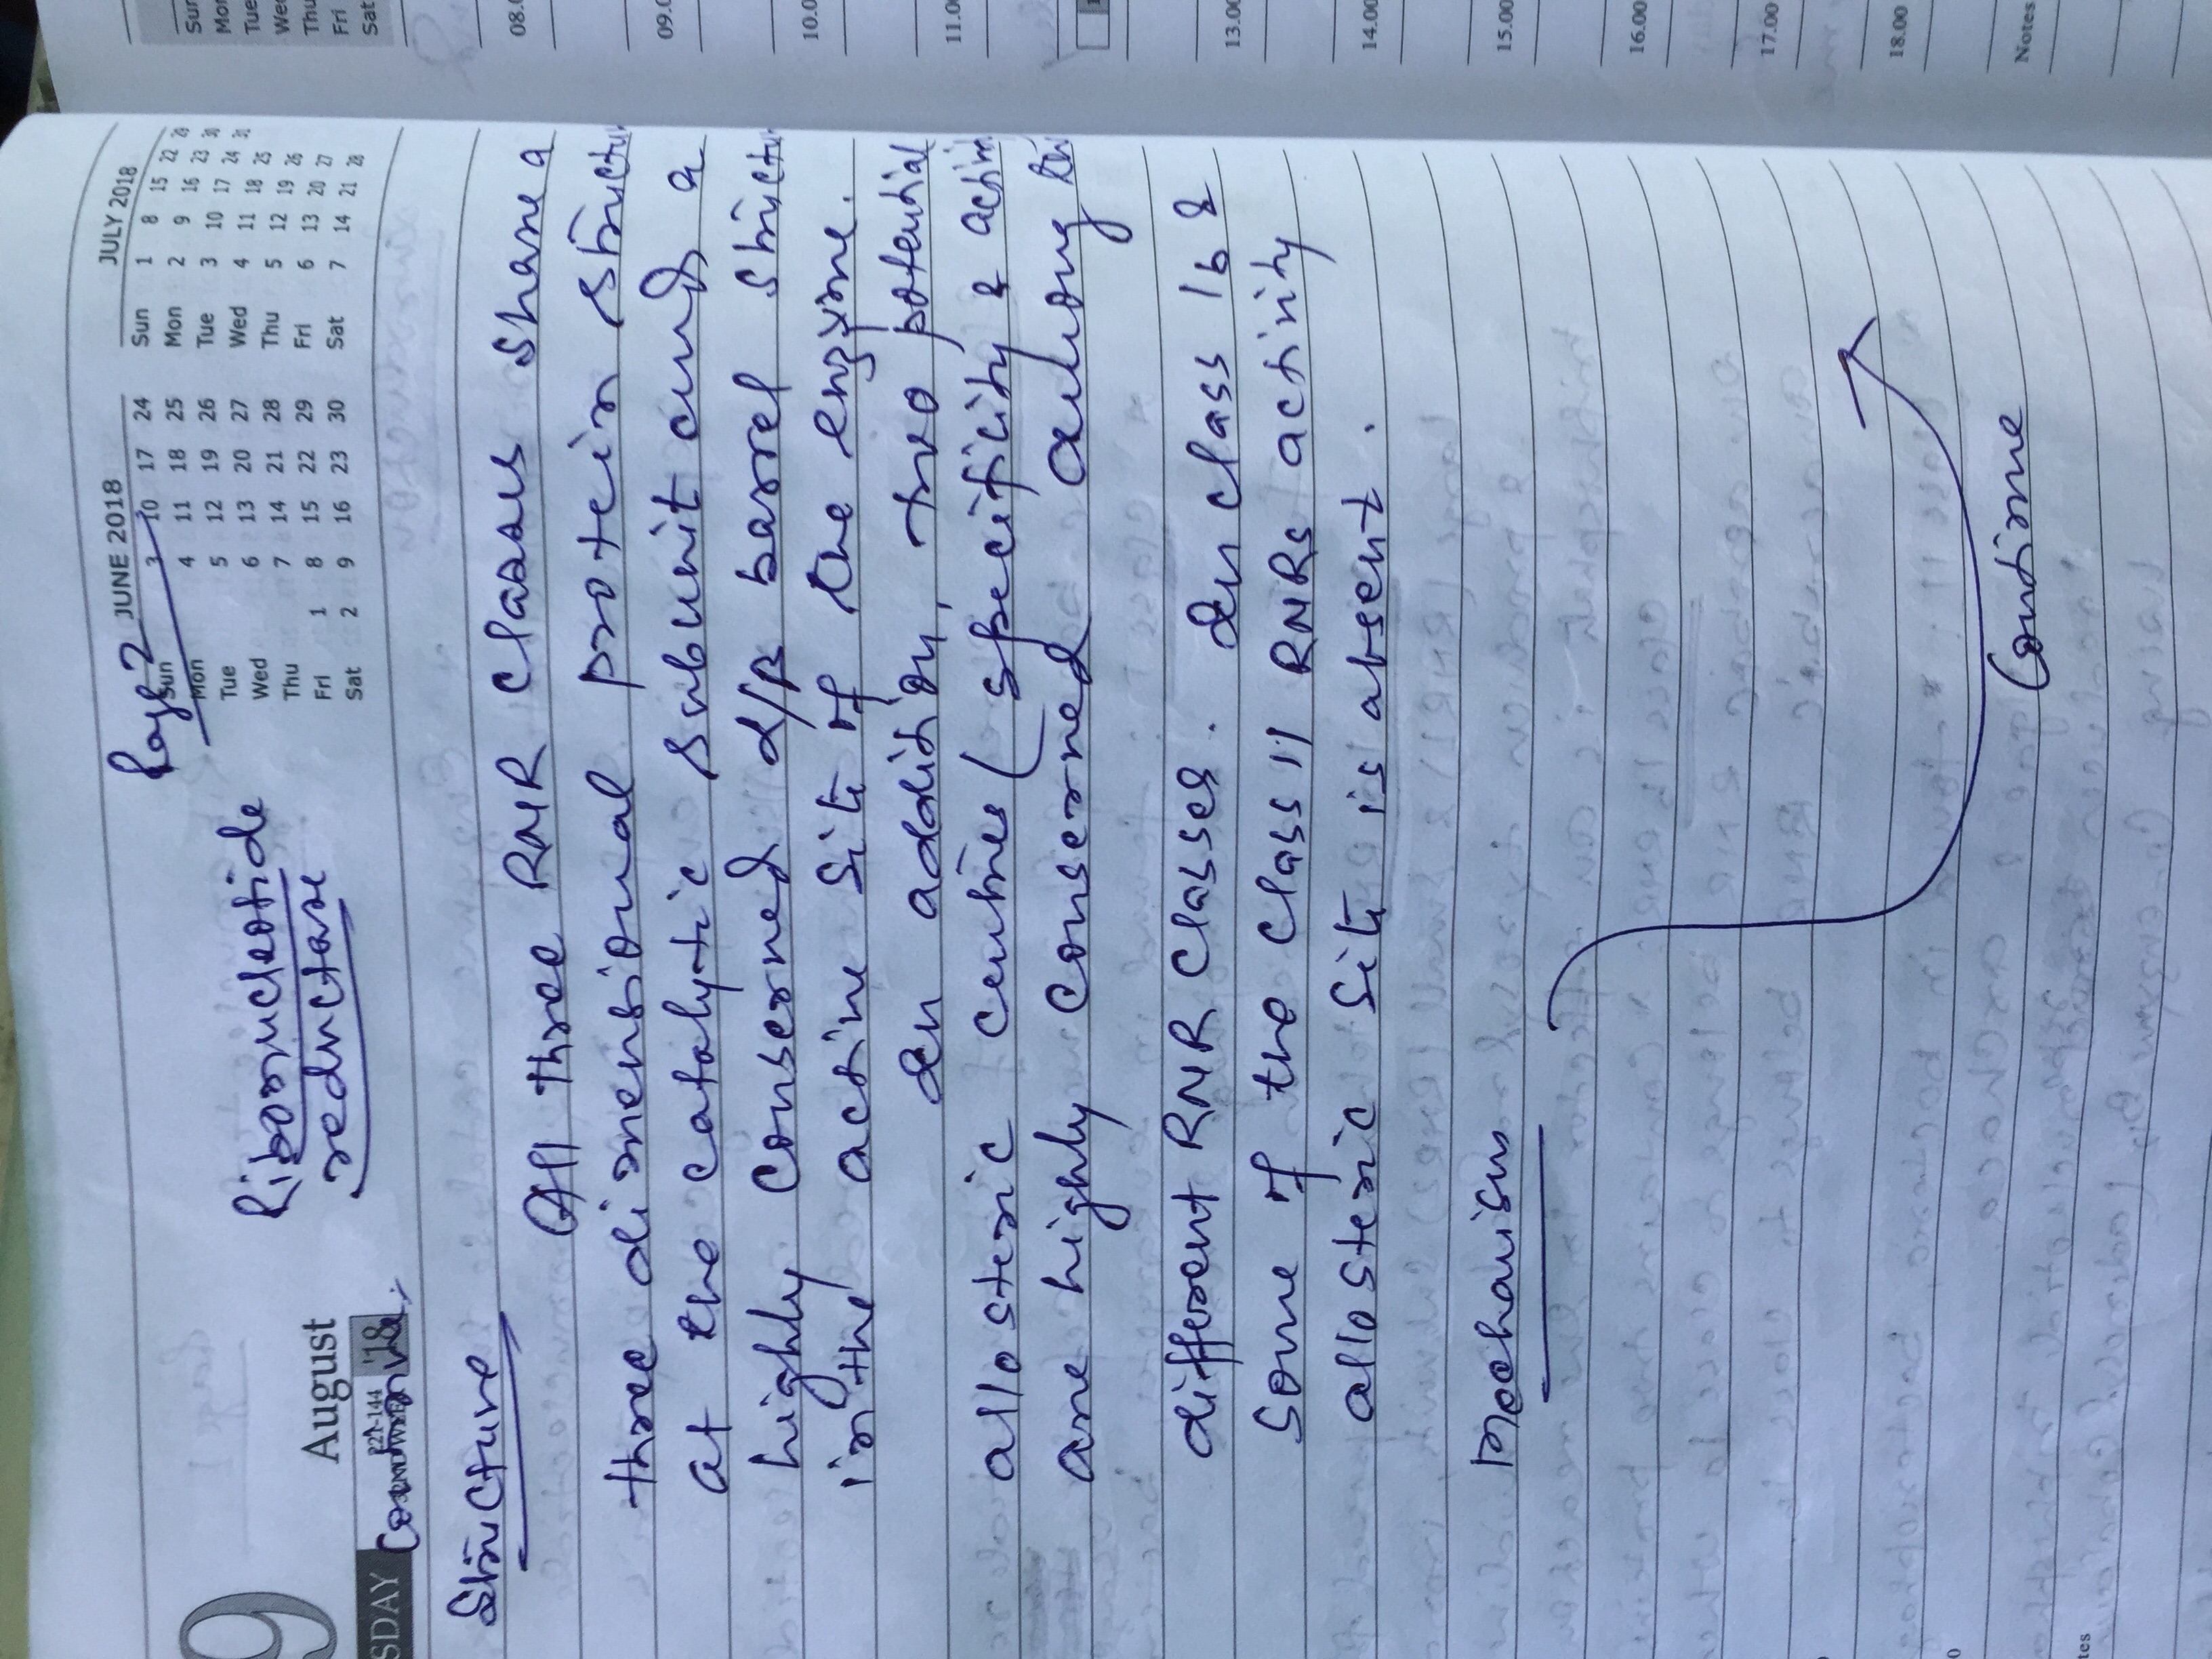 9
August
SDAY
221-144
'18
Continue
Ribonucleotide
reductase
Page 2
JUNE 2018
Sun 3 10 17 24
Mon 4 11 18 25
Tue 5 12 19 26
Wed 6 13 20 27
Thu 7 14 21 28
Fri 1 8 15 22 29
Sat 2 9 16 23 30
JULY 2018
Sun 1 8 15 22 29
Mon 2 9 16 23 30
Tue 3 10 17 24 31
Wed 4 11 18 25
Thu 5 12 19 26
Fri 6 13 20 27
Sat 7 14 21 28
Structure
All three RNR classes share a
three dimensional protein structu
at the catalytic subunit and a
highly conserved α/β barrel structu
in the active site of the enzyme.
In addition, two potential
allosteric centres (specificity & activi
are highly conserved among
different RNR classes. In class 1b &
some of the class II RNRs activity
allosteric site is absent.
Mechanism
Continue
Sun
Mon
Tue
Wed
Thu
Fri
Sat
08.0
09.0
10.0
11.00
13.00
14.00
15.00
16.00
17.00
18.00
Notes